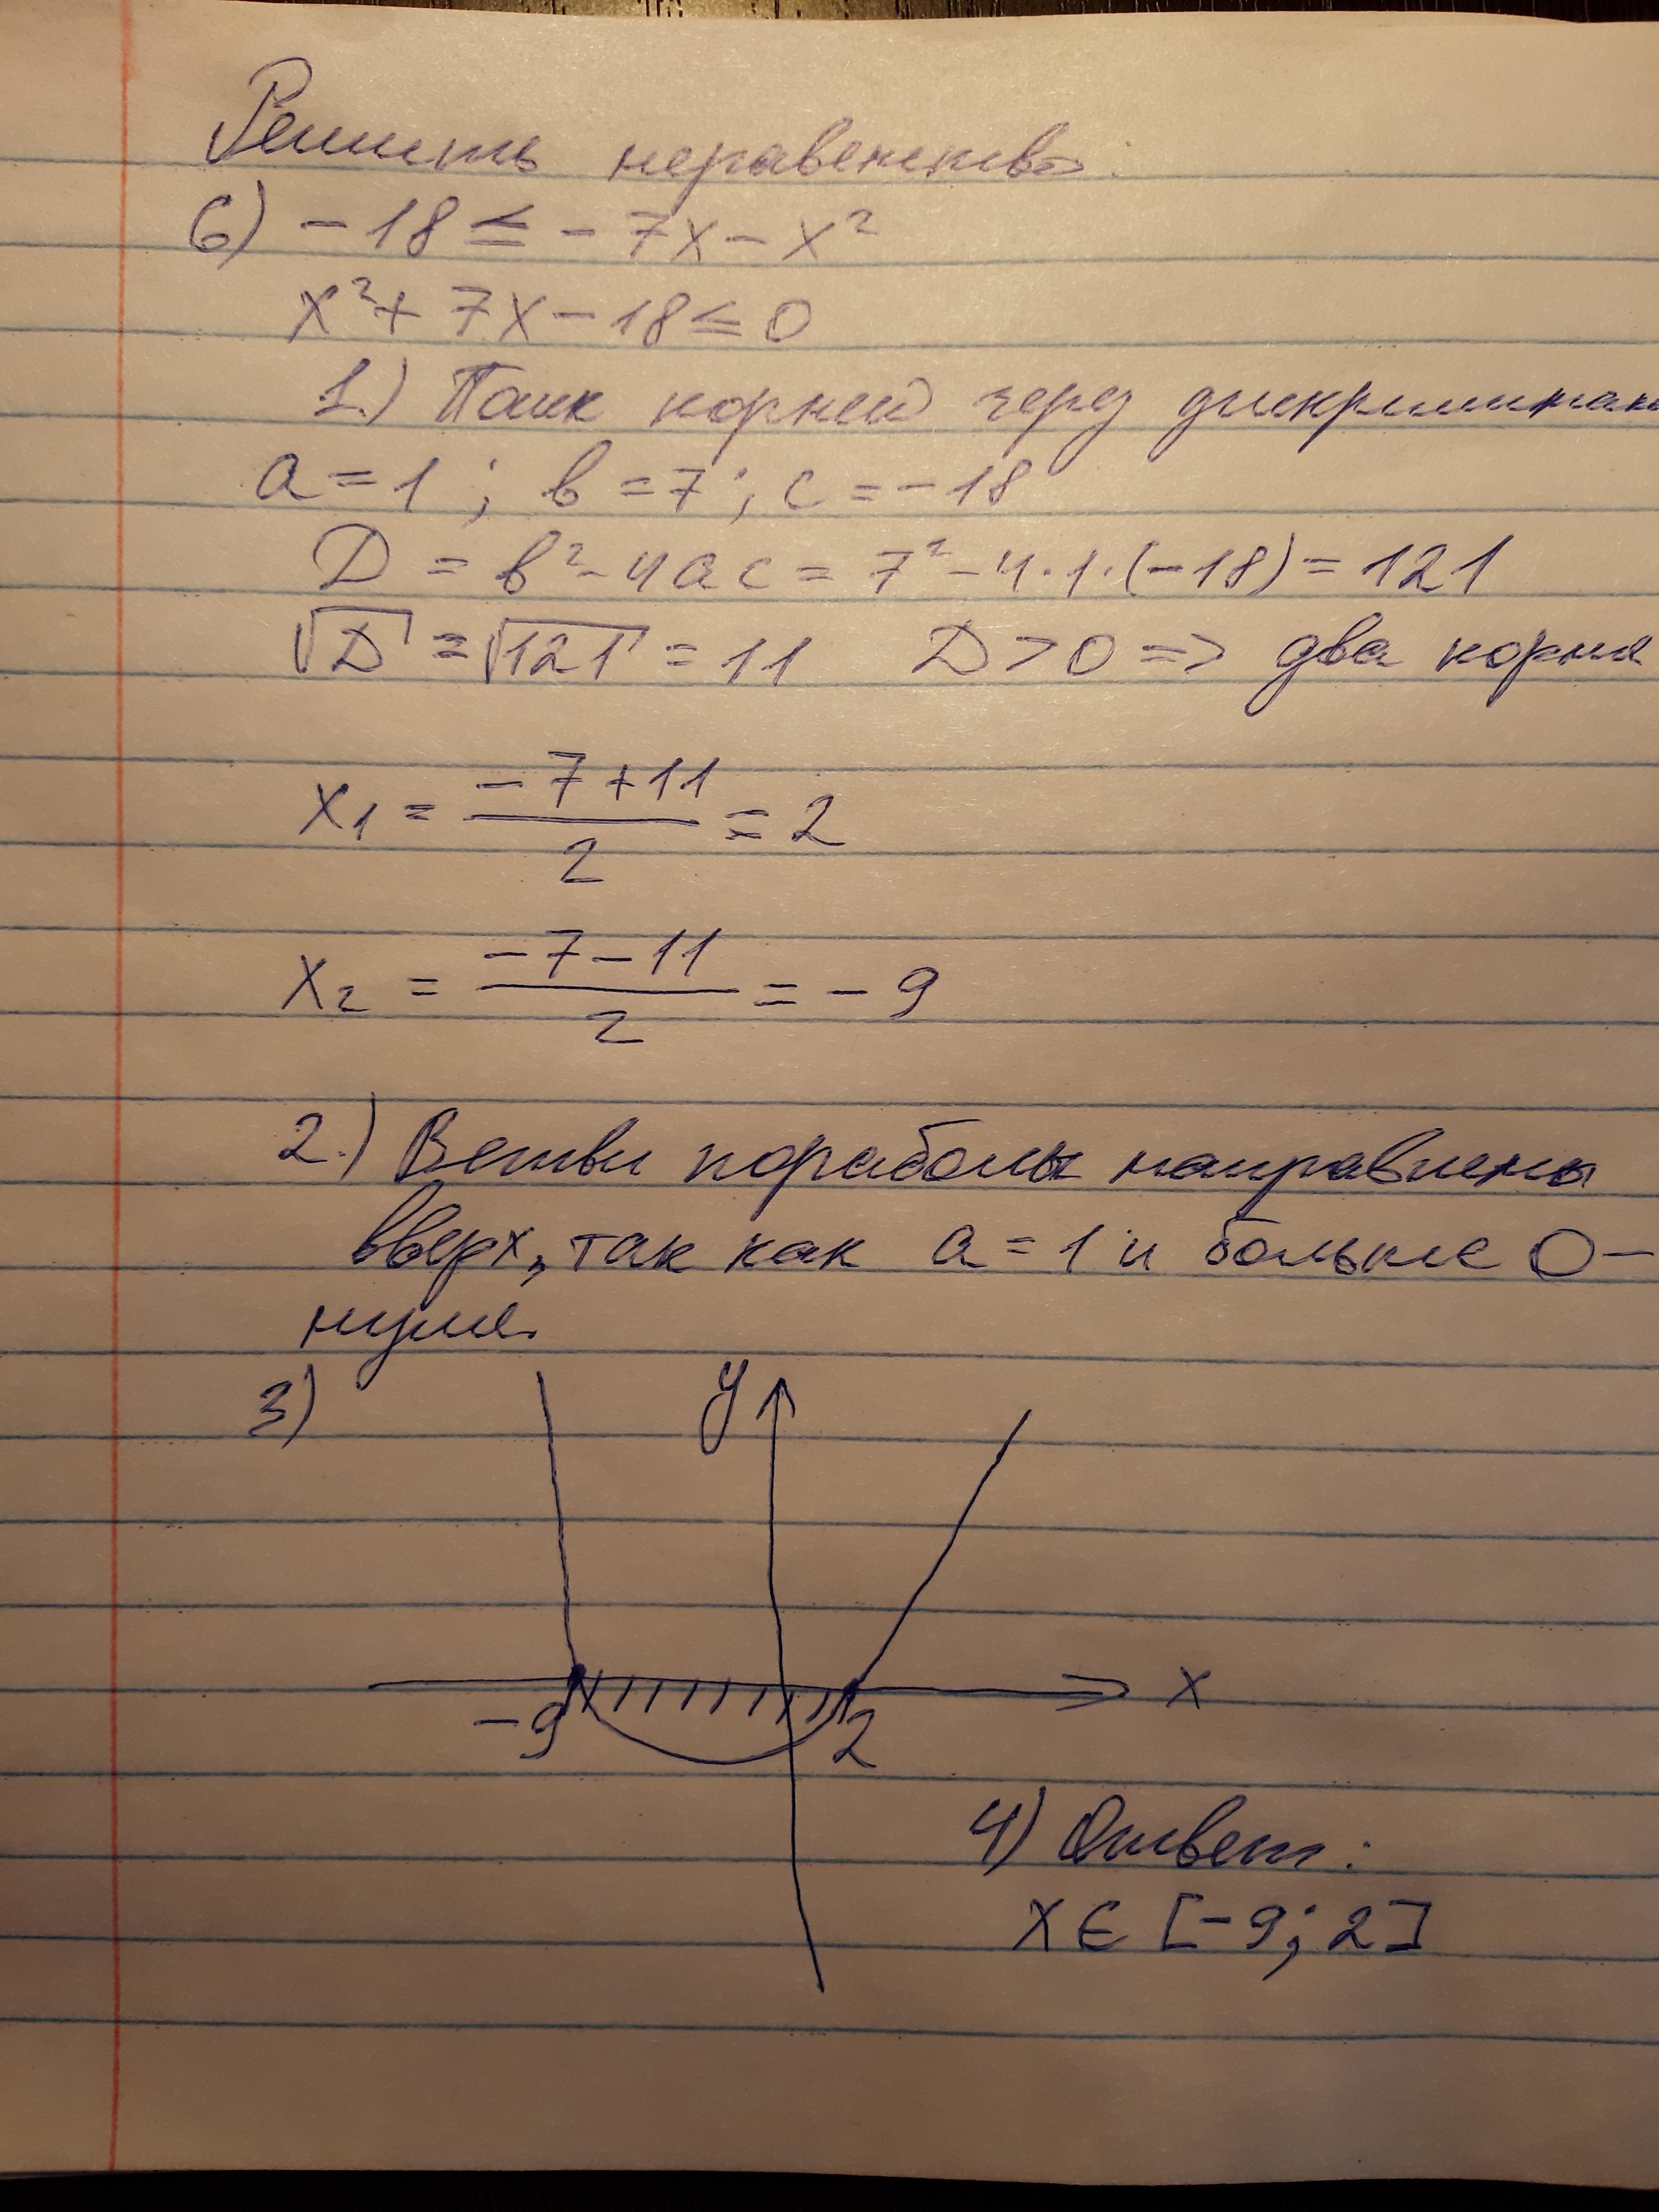 Решить неравенство.
6) -18 ≤ -7x - x²
x² + 7x - 18 ≤ 0
1.) Поиск корней через дискриминан
a = 1 ; b = 7 ; c = -18
D = b² - 4ac = 7² - 4·1·(-18) = 121
√D = √121 = 11 D > 0 => два корня
x₁ = (-7 + 11)/2 = 2
x₂ = (-7 - 11)/2 = -9
2.) Ветви пораболы направлены
вверх, так как a = 1 и больше 0 -
нуля.
3) y
x
-9 2
4) Ответ:
x ∈ [-9; 2]